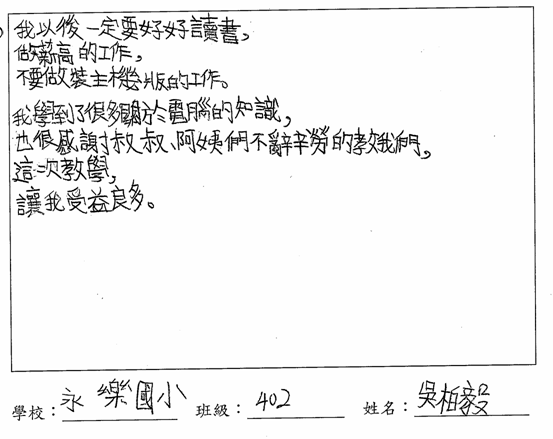 我以後一定要好好讀書,
做薪高的工作,
不要做裝主機版的工作。
我學到了很多關於電腦的知識,
也很感謝叔叔、阿姨們不辭辛勞的教我們,
這次教學,
讓我受益良多。
學校:永樂國小 班級:402 姓名:吳柏毅